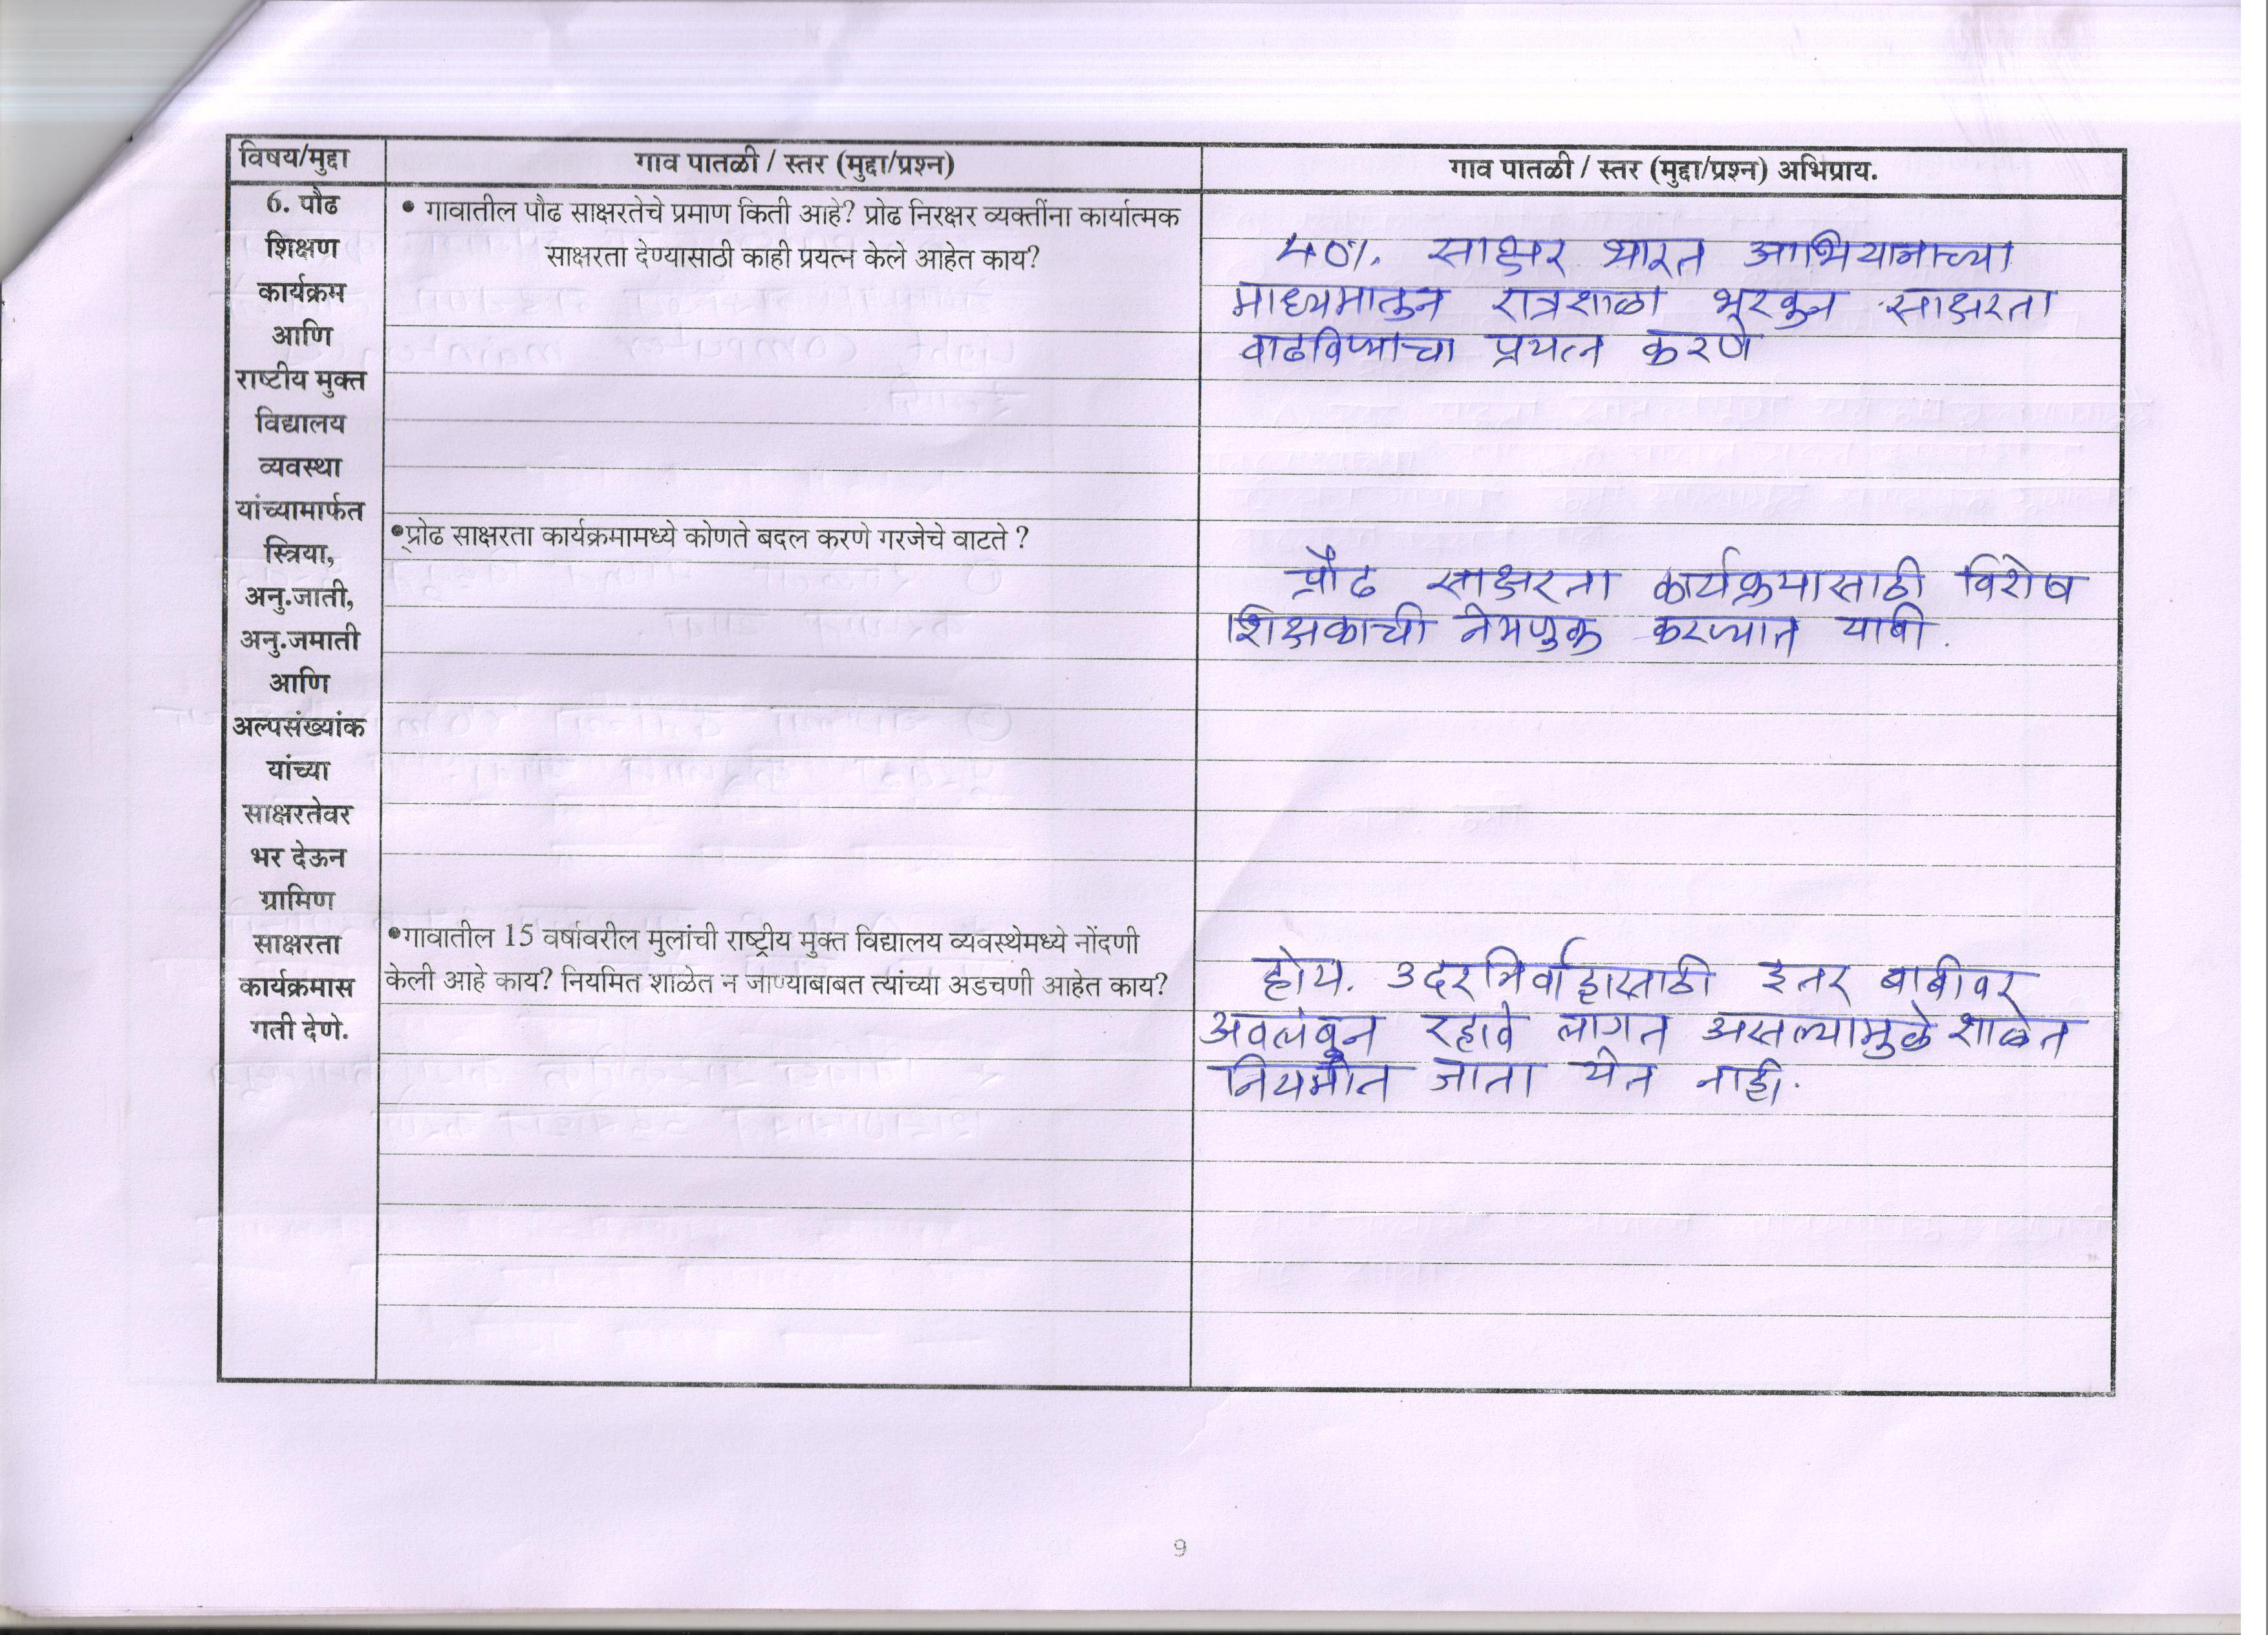 विषय/मुद्दा
गाव पातळी / स्तर (मुद्दा/प्रश्न)
गाव पातळी / स्तर (मुद्दा/प्रश्न) अभिप्राय.
6. पौढ
शिक्षण
कार्यक्रम
आणि
राष्टीय मुक्त
विद्यालय
व्यवस्था
यांच्यामार्फत
स्त्रिया,
अनु.जाती,
अनु.जमाती
आणि
अल्पसंख्यांक
यांच्या
साक्षरतेवर
भर देऊन
ग्रामिण
साक्षरता
कार्यक्रमास
गती देणे.
• गावातील पौढ साक्षरतेचे प्रमाण किती आहे? प्रोढ निरक्षर व्यक्तींना कार्यात्मक
साक्षरता देण्यासाठी काही प्रयत्न केले आहेत काय?
साक्षर भारत अभियानाच्या
माध्यमातुन रात्रशाळा साक्षरता
वाढविण्याचा प्रयत्न करणे
•प्रोढ साक्षरता कार्यक्रमामध्ये कोणते बदल करणे गरजेचे वाटते ?
प्रौढ साक्षरता कार्यक्रमासाठी विशेष
शिक्षकाची नेमणुक करण्यात यावी.
•गावातील 15 वर्षावरील मुलांची राष्ट्रीय मुक्त विद्यालय व्यवस्थेमध्ये नोंदणी
केली आहे काय? नियमित शाळेत न जाण्याबाबत त्यांच्या अडचणी आहेत काय?
होय. उदरनिर्वाहासाठी इतर बाबीवर
अवलंबुन रहावे लागत असल्यामुळे शाळेत
नियमीत जाता येत नाही.
9